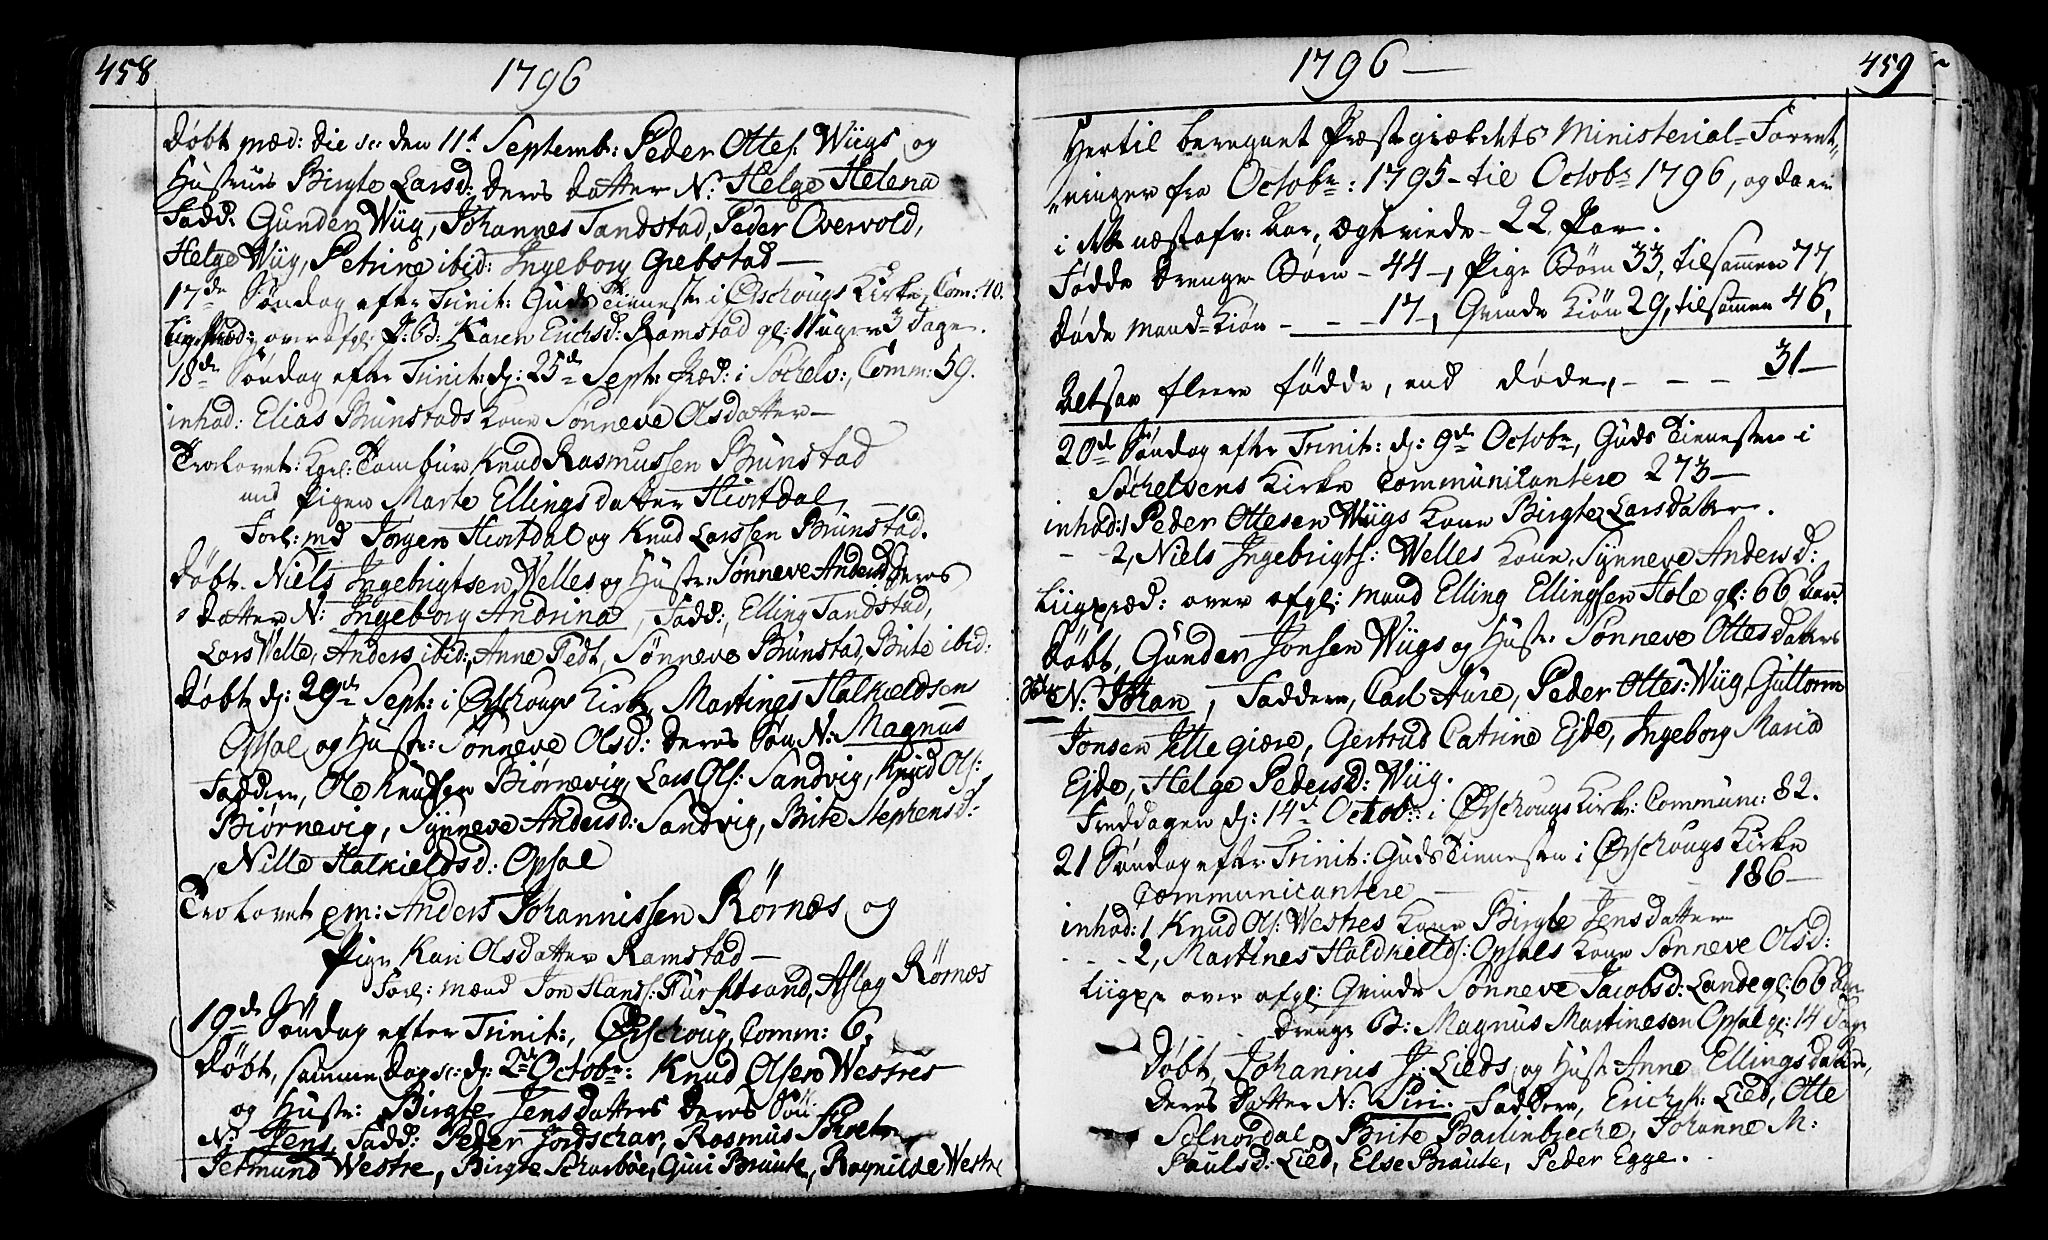 458
1796
Døbt med: die sc: den 11t Septemb: Peder Ottes: Wiigs og
Hustrue Birgte Larsd: deres Datter N: Helge Helena
Fadd: Gunder Wiig, Johannes Tandstad, Peder Overvold,
Helge Wiig, Petrine ibid: Ingeborg Grebstad —
17de Søndag efter Trinit: Guds Tieneste i Ørschougs Kirke, Com: 40.
Ligpræd: over afgl: P: B: Karen Erichsd: Ramstad gl: 11 uger 3 Dage.
18de Søndag efter Trinit: dj: 25de Sept: Præd: i Søchelv:, Comm: 59.
inhod: Elias Brunstads Kone Sønneve Olsdatter —
Trolovet: Kgel: Tambur Knud Rasmussen Brunstad
med Pigen Marte Ellingsdatter Hiortdal,
Forl: md Jørgen Hiortdal og Knud Larssen Brunstad.
Døbt. Niels Ingebrigtsen Welles og Hustr: Sønneve Andersd: Deres
Datter N: Ingeborg Andrina, Fadd:, Elling Tandstad,
Lars Welle, Anders ibid:, Anne Fedt, Sønneve Brunstad, Brite ibid:
Døbt dj: 29de Sept: i Ørschougs Kirke, Martines Halkieldsen
Opsal og Hustr: Sønneve Olsd: Deres Søn N: Magnus
Faddere, Ole Knudsen Biørnevig, Lars Ols: Sandvig, Knud Ols:
Biørnevig, Synneve Andersd: Sandvig, Brite Stephensd:
Nille Halkieldsd: Opsal
Trolovet em: Anders Johannissen Rørnæs og
Pige Kari Olsdatter Ramstad —
Forl: mænd Jon Hans: Furstrand, Aslag Rørnæs
19de Søndag efter Trinit:, Ørschoug, Comm: 6,
Døbt, samme Dag sc: dj: 2de Octobr: Knud Olsen Westres
og Hustr: Birgte Jensdatters Deres Søn
N: Jens, Fadd: Peder Jordschar, Rasmus
Jetmund Westre, Birgte Scharbøe, Guri Braute, Ragnilde Westre
1796 —
459
Hertil beregnet Præstegieldets Ministerial-Forret-
ninger fra Octobr: 1795 til Octobr 1796, og da er
i dette næstafv: Aar, Ægteviede 22 Par.
Fødde Drenge Børn - 44 -, Pige Børn 33, tilsammen 77
Døde Mand-Kiøn - - - 17 -, Qvinde Kiøn 29, tilsammen 46,
Altsaa fleere fødde, end døde, - - - 31 —
20de Søndag efter Trinit: dj: 9de Octobr, Guds Tienesten i
Søchelvens Kirke Communicantere 273 —
inhod: 1 Peder Ottesen Wiigs Kone Birgte Larsdatter.
- - 2, Niels Ingebrigts: Welles Kone Synneve Andersd:
Liigpræd: over afgl: Mand Elling Ellingsen Hole gl: 66 Aar.
Døbt, Gunder Jonsen Wiigs og Hustr: Sønneve Ottesdatters
Søn N: Johan, Faddere, Carl Aure, Peder Ottes: Wiig, Guttorm
Jonsen Jellegiære, Gertrud Catrine Ejde, Ingeborg Maria
Ejde, Helge Pedersd: Wiig.
Freddagen dj: 14de Octobr: i Ørschougs Kirk: Commun: 82.
21 Søndag efter Trinit: Guds Tienesten i Ørschougs Kirke
Communicantere — 186 —
inhod: 1 Knud Ols: Westres Kone Birgte Jensdatter
- - - 2, Martines Haldkields: Opsals Kone Sønneve Olsd:
Liigpr over afgl: Qvinde Sønneve Jacobsd: Lande gl: 66 Aar
- - - Drenge B: Magnus Martinesen Opsal gl: 14 Dage
Døbt, Johannis J: Lieds og Hustr Anne Ellingsdatter,
Deres Datter N: Siri. Faddere, Erich K: Lied, Otte
Solnordal, Brite Barlinbreche, Johanne M:
Paulsd: Lied, Else Braute, Peder Egge.